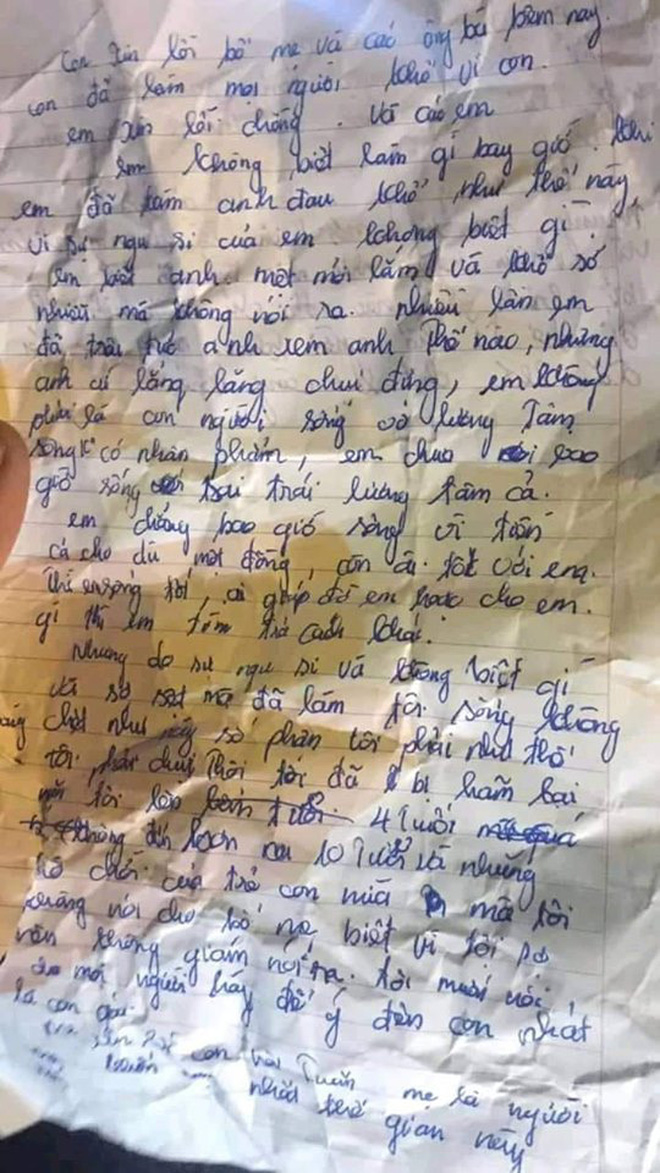 con xin lỗi bố mẹ và các ông bà bên nay.
con đã làm mọi người khổ vì con.
em xin lỗi chồng. và các em
em không biết làm gì bay giờ. khi
em đã làm anh đau khổ như thế này,
vì sự ngu si của em. không biết gì.
em biết anh mệt mỏi lắm và khổ sở
nhiều mà không nói ra. nhiều lần em
đã trêu tức anh xem anh thế nào, nhưng
anh cứ lẳng lặng chưi đừng, em không
phải là con người sống vô lương Tâm
sống có nhân phẩm, em chưa bao
giờ sống trai trái lương tâm cả.
em chẳng bao giờ sống vì tiền
cả cho dù một đồng, còn ai tốt với em.
thì em sống tốt, ai giúp đỡ em hoặc cho em.
gì thì em tìm trả cách khác.
Nhưng do sự ngu si và không biết gì
và sơ sẹt mà đã làm tôi sống không
chết như này số phận tôi phải như thế
tôi phải chưi Thôi tôi đã bị hãm hại
tôi lên 4 Tuổi
không đến hơn 10 Tuổi và những
trò chơi của trẻ con nữa mà tôi
không nói cho bố mẹ biết vì tôi sợ
nên không giám nói ra. tôi muốn nói,
mọi người hãy để ý đến con nhất
là con gái.
con hai Tuấn mẹ là người
nhất thế gian này